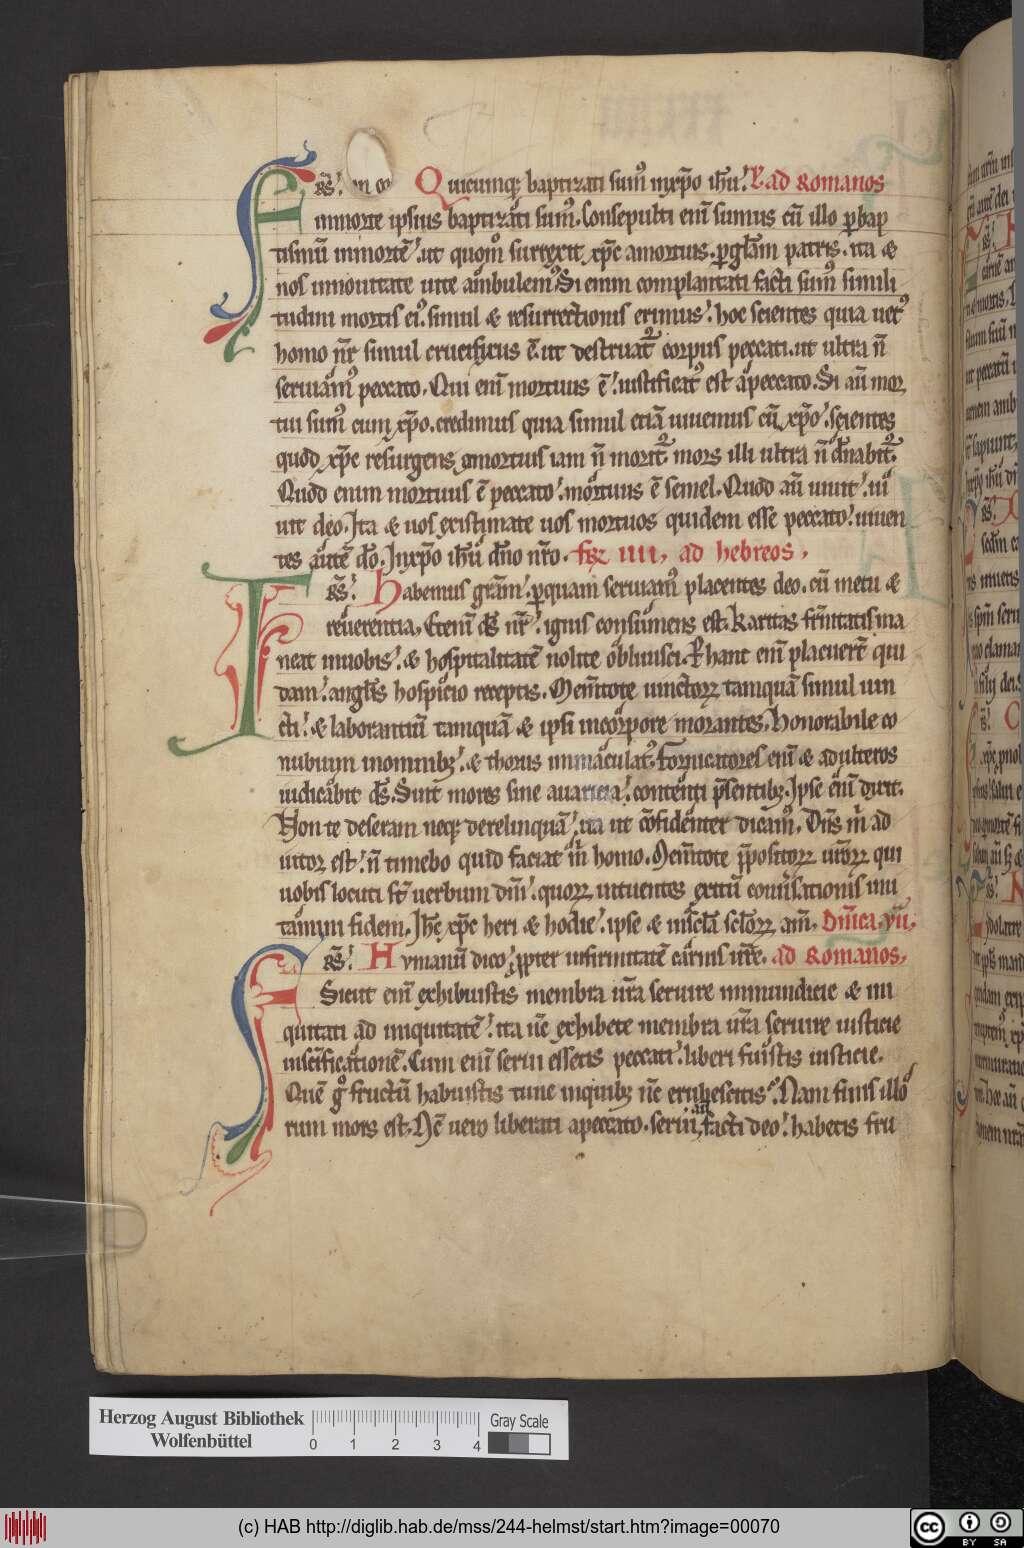 Fr̄s̄. Quicumqꝫ baptizati sumꝰ inxp̄o ih̄u. L ad Romanos
inmorte ipsius baptizati sumꝰ. Consepulti eni̅ sumus cu̅ illo ꝑbap
tismu̅ inmorte̅. ut quomͦ surrexit xp̄c amortuis. ꝑgłam patris. ita &
nos innouitate uite ambulemꝰ. Si enim complantati facti sumꝰ simili
tudini mortis eiꝰ. simul & resurrectionis erimus. hoc scientes quia uetꝰ
homo nr̄ simul crucifixus e̅. ut destruat᷑ corpus peccati. ut ultra n̅
seruiamꝰ peccato. Qui eni̅ mortuus e̅. iustificatꝰ est apeccato. Si au̅ mor
tui sumꝰ cum xp̄o. credimus quia simul etia̅ uiuemus cu̅ xp̄o. scientes
quod xp̄c resurgens amortuis iam n̅ morit᷑. mors illi ultra n̅ dn̅abit᷑.
Quod enim mortuus e̅ peccato. mortuus e̅ semel. Quod au̅ uiuit. ui
uit deo. Ita & uos existimate uos mortuos quidem esse peccato. uiuen
tes aute̅ do̅. Inxp̄o ih̄u dn̅o nr̄o. fꝫ iiii. ad hebreos.
Fr̄s̄. Habemus gr̄am. ꝑquam seruiamꝰ placentes deo. cu̅ metu &
reuerentia. Eteni̅ ds̅ nr̄. ignis consumens est. Karitas fr̄nitatis ma
neat inuobis. & hospitalitate̅ nolite obliuisci. Ꝑhanc eni̅ placuer̅t qui
dam. angl̅is hospicio receptis. Mem̅tote uinctoꝝ tamqua̅ simul uin
cti. & laborantiu̅ tamqua̅ & ipsi incorpore morantes. Honorabile co
nubium inomnibꝫ. & thorus inmaculatꝰ. Fornicatores eni̅ & adulteros
iudicabit ds̅. Sint mores sine auaricia. contenti p̄sentibꝫ. Ipse eni̅ dixit.
Non te deseram neqꝫ derelinqua̅. ita ut co̅fidenter dicamꝰ. Dn̅s m̅ ad
iutor est. n̅ timebo quid faciat m̅ homo. Mem̅tote p̄positoꝝ ur̄oꝝ qui
uobis locuti st̅ uerbum dni̅. quoꝝ intuentes exitu̅ conu̅sationis imi
tamini fidem. Ih̄c xp̄c heri & hodie. ipse & in sc̄la sc̄loꝝ am̅. Dn̅ica. vii.
Fr̄s̄. Humanu̅ dico. ꝓpter infirmitate̅ carnis ur̄e. ad Romanos.
Sicut eni̅ exhibuistis membra ur̄a seruire inmundicie & ini
quitati ad iniquitate̅. ita nc̄ exhibete membra ur̄a seruire iusticie
insc̄ificatione̅. Cum eni̅ serui essetis peccati. liberi fuistis iusticie.
Que̅ gͦ fructu̅ habuistis tunc inquibꝫ nc̄ erubescitis. Nam finis illo
rum mors est. Nc̄ uero liberati apeccato. serui au̅ facti deo. habetis fru
Herzog August Bibliothek
Wolfenbüttel
0 1 2 3 4
Gray Scale
(c) HAB http://diglib.hab.de/mss/244-helmst/start.htm?image=00070
cc BY SA